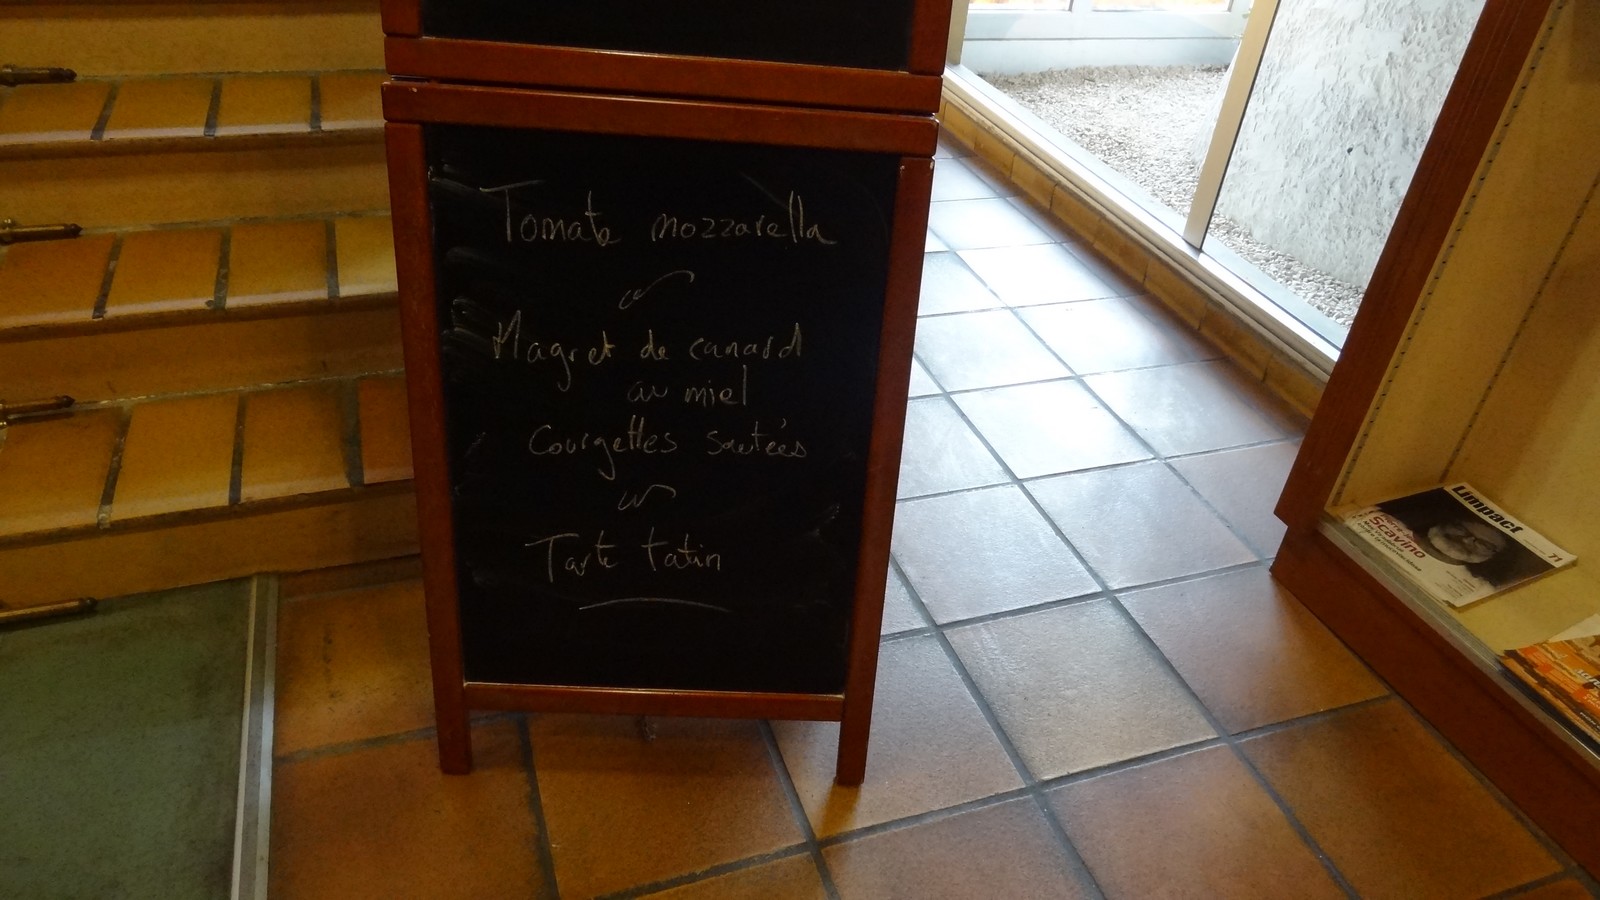 Tomate mozzarella
Magret de canard
au miel
Courgettes sautées
Tarte tatin
L'impact
Scavino
71